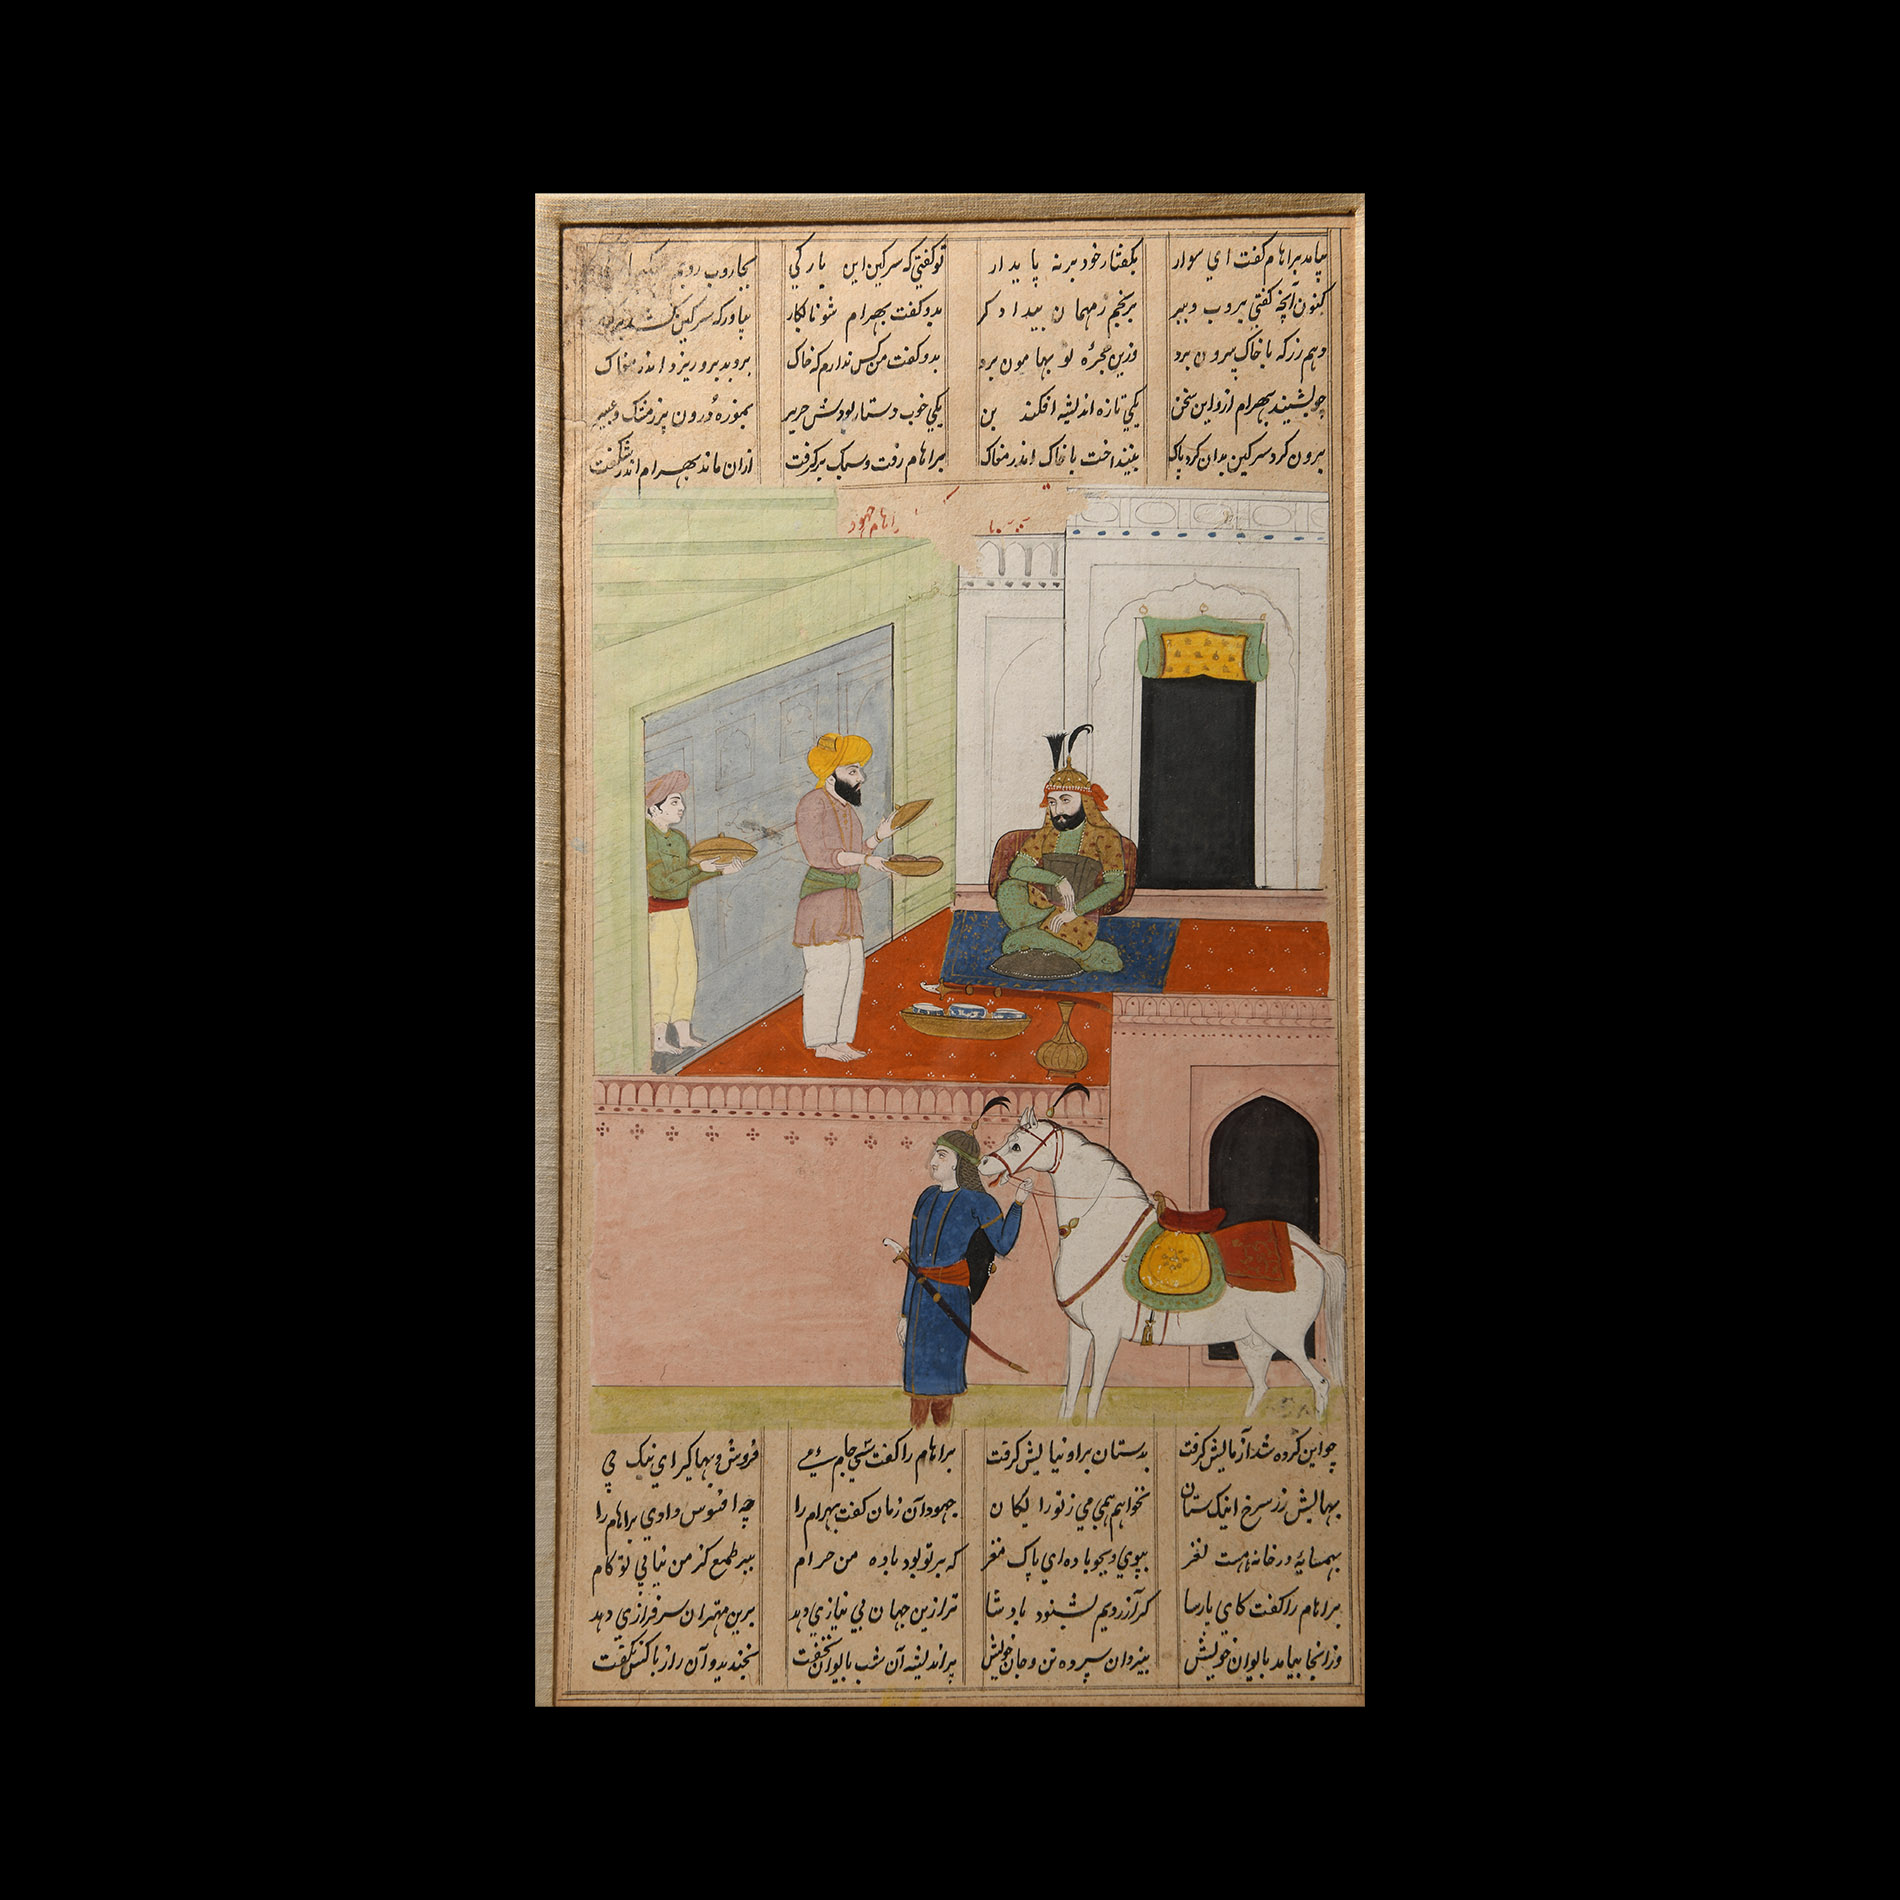 بیامد براهام گفت ای سوار بگفتار خود بر نهٔ پایدار توگفتی که سرکین این بارکی بجاروب روبم
کنون آنچه گفتی بروب و ببر برنجم ز مهمان بیدادکر بدو کفت بهرام شو نابکار بیاور که سرکین کشد بر
دهم زر که با خاک بیرون برد وزین حجرهٔ تو بهامون برد بدو کفت من کس ندارم که خاک بروبد برو ریزد اندر مغاک
چو بشنید بهرام ازو این سخن یکی تازه اندیشه افکند بن یکی خوب دستار بودش حریر بموزه درون پر ز مشک و عبیر
برون کرد و سرکین بدان کرد پاک بینداخت با خاک اندر مغاک براهام رفت و سبک بر کرفت ازان ماند بهرام اندر شکفت
براهام جهود
چو این کرده شد آزمایش کرفت بدستان براو نیایش کرفت براهام را کفت جام می فروش و بها کیر ای نیک پی
بهایش زر سرخ اینک ستان نخواهم همی می ز تو رایکان جهود آن زمان کفت بهرام را چه افسوس دادی براهام را
بهمسایه در خانه هست نغز بپوی و بجو باده ای پاک مغز که بر تو بود باده من حرام ببر طمع کز من نیابی تو کام
براهام را کفت کای پارسا کر آزردیم بشنود پادشا ترا زین جهان بی نیازی دهد برین مهتران سرفرازی دهد
وزانجا بیامد بایوان خویش بیزدان سپرده تن و جان خویش پر اندیشه آن شب بایوان بخفت بخندید و آن راز با کس نکفت